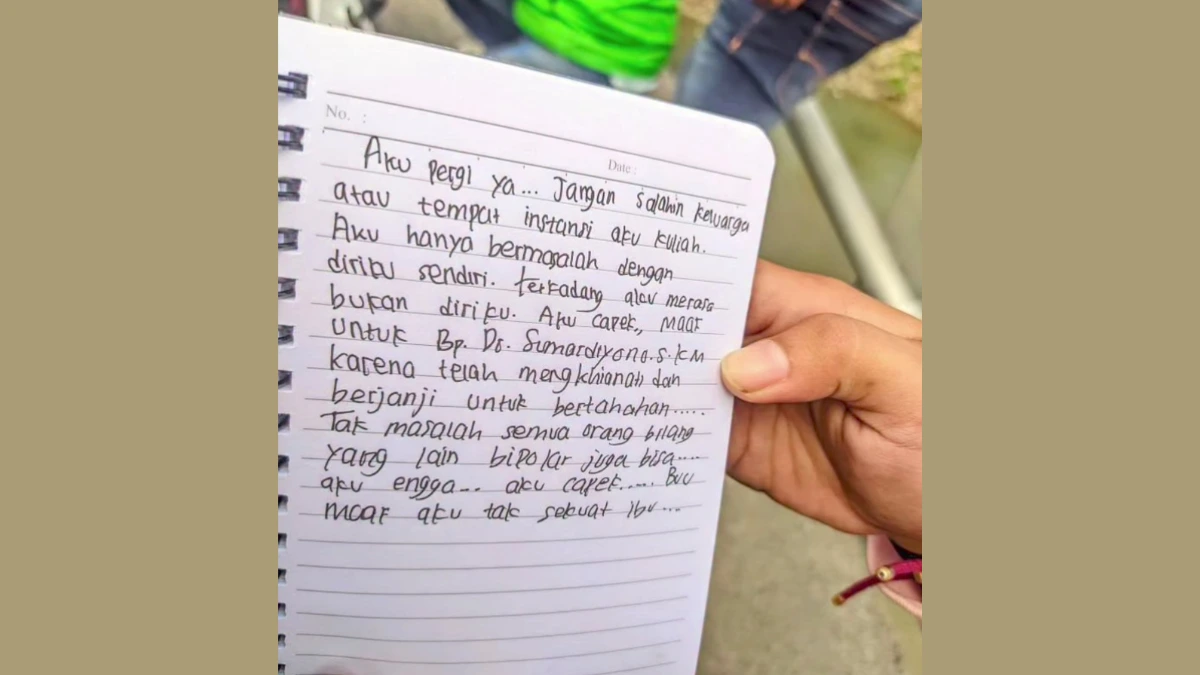 No. :
Date :
Aku pergi ya... Jangan salahin keluarga
atau tempat instansi aku kuliah.
Aku hanya bermasalah dengan
diriku sendiri. terkadang aku merasa
bukan diriku. Aku capek,, maaf
untuk Bp. Ds. Sumardiyono.S.KM
karena telah mengkhianati dan
berjanji untuk bertahahan.....
Tak masalah semua orang bilang
yang lain bipolar juga bisa....
aku engga... aku capek..... Buu
maaf aku tak sekuat ibu...